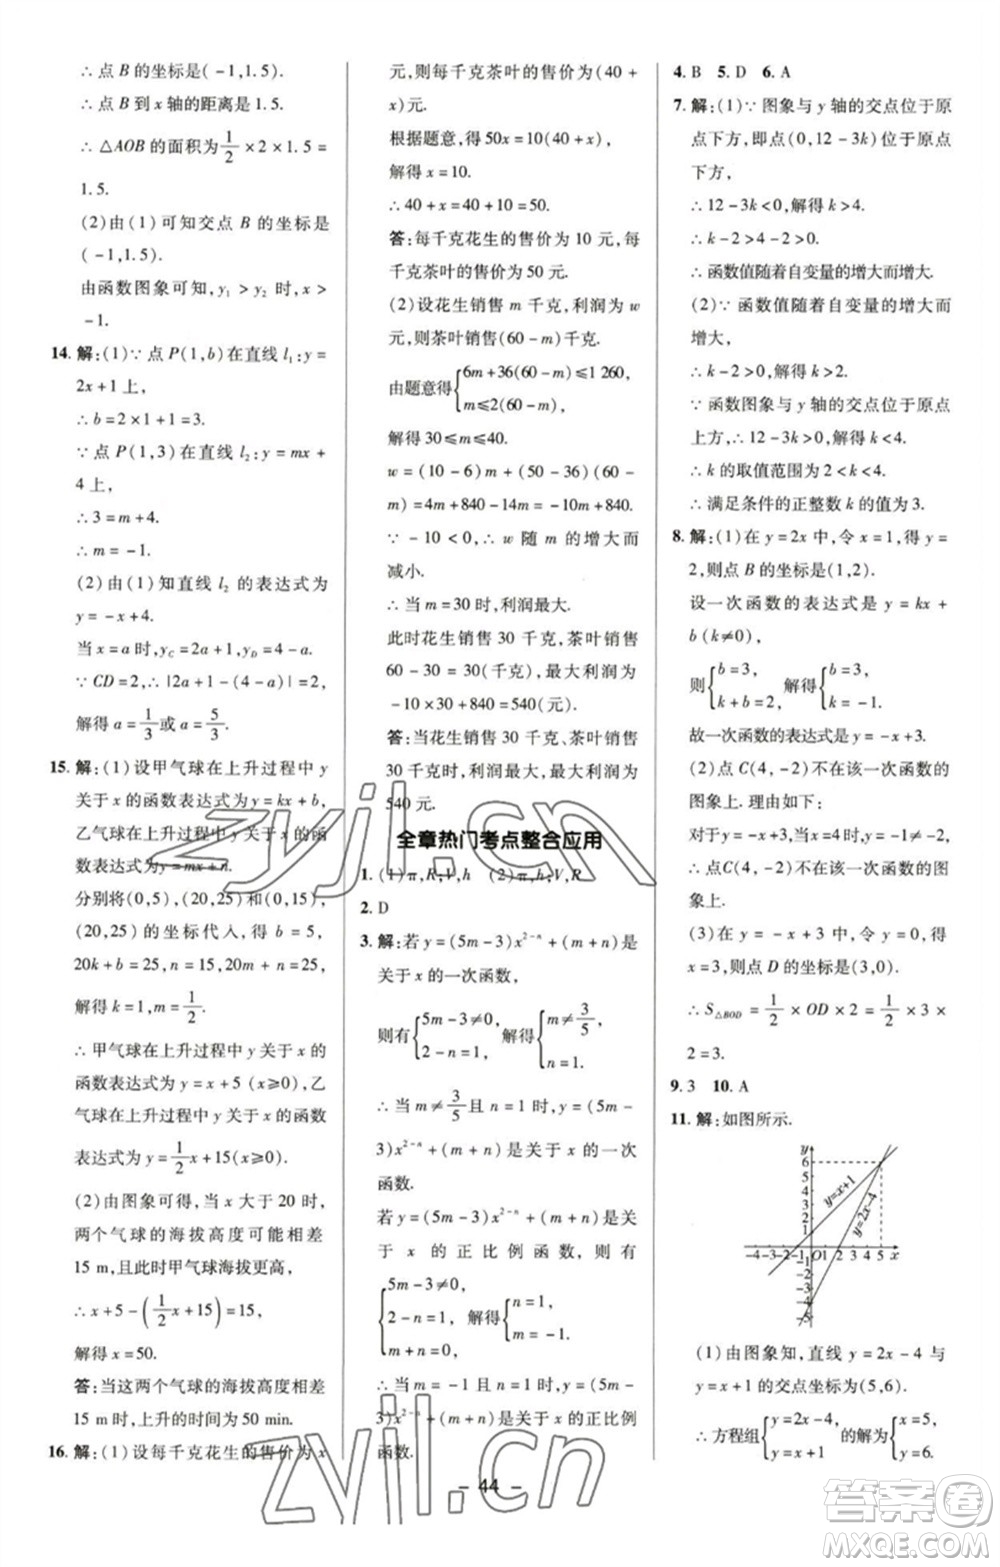 ∴ 点 B 的坐标是(-1,1.5).
∴ 点 B 到 x 轴的距离是 1.5.
∴ △AOB 的面积为 1/2 × 2 × 1.5 =
1.5.
(2)由(1)可知交点 B 的坐标是
(-1,1.5).
由函数图象可知,y₁ > y₂ 时,x >
-1.
14. 解:(1)∵ 点 P(1,b)在直线 l₁:y=
2x+1 上,
∴ b=2×1+1=3.
∵ 点 P(1,3)在直线 l₂:y=mx+
4 上,
∴ 3=m+4.
∴ m=-1.
(2)由(1)知直线 l₂ 的表达式为
y=-x+4.
当 x=a 时,y_C=2a+1,y_D=4-a.
∵ CD=2,∴ |2a+1-(4-a)|=2,
解得 a=1/3或 a=5/3.
15. 解:(1)设甲气球在上升过程中 y
关于 x 的函数表达式为 y=kx+b,
乙气球在上升过程中 y 关于 x 的函
数表达式为 y=mx+n.
分别将(0,5),(20,25)和(0,15),
(20,25)的坐标代入,得 b=5,
20k+b=25,n=15,20m+n=25,
解得 k=1,m=1/2.
∴ 甲气球在上升过程中 y 关于 x 的
函数表达式为 y=x+5 (x≥0),乙
气球在上升过程中 y 关于 x 的函数
表达式为 y=1/2x+15(x≥0).
(2)由图象可得,当 x 大于 20 时,
两个气球的海拔高度可能相差
15 m,此时甲气球海拔更高,
∴ x+5-(1/2x+15)=15,
解得 x=50.
答:当这两个气球的海拔高度相差
15 m 时,上升的时间为 50 min.
16. 解:(1)设每千克花生的售价为 x
元,则每千克茶叶的售价为(40+
x)元.
根据题意,得 50x=10(40+x),
解得 x=10.
∴ 40+x=40+10=50.
答:每千克花生的售价为 10 元,每
千克茶叶的售价为 50 元.
(2)设花生销售 m 千克,利润为 w
元,则茶叶销售(60-m)千克.
由题意得{6m+36(60-m)≤1 260,
m≤2(60-m),
解得 30≤m≤40.
w=(10-6)m+(50-36)(60-
m)=4m+840-14m=-10m+840.
∵ -10<0,∴ w 随 m 的增大而
减小.
∴ 当 m=30 时,利润最大.
此时花生销售 30 千克,茶叶销售
60-30=30(千克),最大利润为
-10×30+840=540(元).
答:当花生销售 30 千克、茶叶销售
30 千克时,利润最大,最大利润为
540 元.
全章热门考点整合应用
1. (1)π,R,V,h (2)π,h;V,R
2. D
3. 解:若 y=(5m-3)x^(2-n)+(m+n)是
关于 x 的一次函数,
则有{5m-3≠0, 解得{m≠3/5,
2-n=1, n=1.
∴ 当 m≠3/5且 n=1 时,y=(5m-
3)x^(2-n)+(m+n)是关于 x 的一次
函数.
若 y=(5m-3)x^(2-n)+(m+n)是关
于 x 的正比例函数,则有
{5m-3≠0,
2-n=1, 解得{n=1,
m+n=0, m=-1.
∴ 当 m=-1 且 n=1 时,y=(5m-
3)x^(2-n)+(m+n)是关于 x 的正比例
函数.
4. B 5. D 6. A
7. 解:(1)∵ 图象与 y 轴的交点位于原
点下方,即点(0,12-3k)位于原点
下方,
∴ 12-3k<0,解得 k>4.
∴ k-2>4-2>0.
∴ 函数值随着自变量的增大而增大.
(2)∵ 函数值随着自变量的增大而
增大,
∴ k-2>0,解得 k>2.
∵ 函数图象与 y 轴的交点位于原点
上方,∴ 12-3k>0,解得 k<4.
∴ k 的取值范围为 2<k<4.
∴ 满足条件的正整数 k 的值为 3.
8. 解:(1)在 y=2x 中,令 x=1,得 y=
2,则点 B 的坐标是(1,2).
设一次函数的表达式是 y=kx+
b(k≠0),
则{b=3, 解得{b=3,
k+b=2, k=-1.
故一次函数的表达式是 y=-x+3.
(2)点 C(4,-2)不在该一次函数的
图象上. 理由如下:
对于 y=-x+3,当 x=4 时,y=-1,
∴ 点 C(4,-2)不在该一次函数的图
象上.
(3)在 y=-x+3 中,令 y=0,得
x=3,则点 D 的坐标是(3,0).
∴ S△BOD=1/2×OD×2=1/2×3×
2=3.
9. 3 10. A
11. 解:如图所示.
y
6
5
4
3
2
1
y=x+1
y=2x-4
-4 -3 -2 -1 O 1 2 3 4 5 x
-1
-2
-3
-4
-5
(1)由图象知,直线 y=2x-4 与
y=x+1 的交点坐标为(5,6).
∴ 方程组{y=2x-4, 的解为{x=5,
y=x+1 y=6.
- 44 -
zyjl.cn
zyjl.cn
答案卷
MXQE.COM